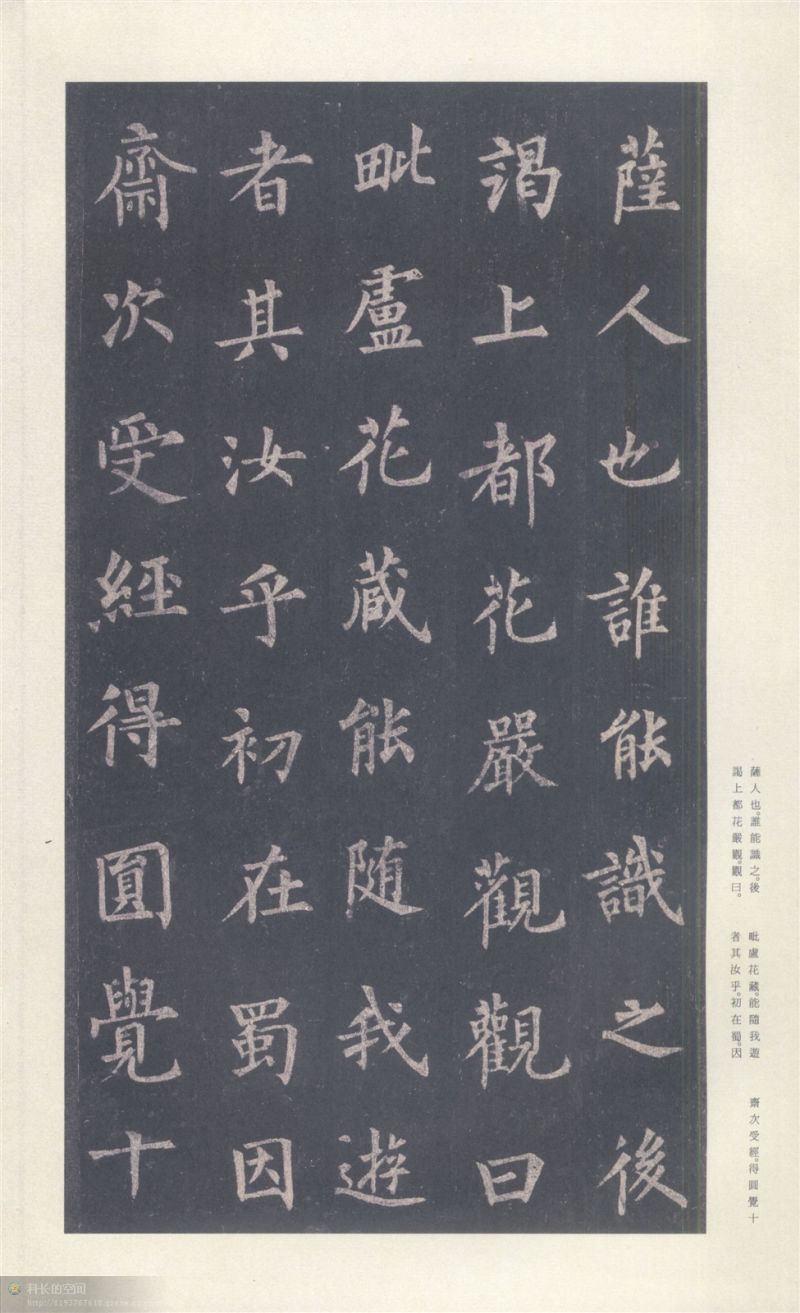 薩人也誰能識之後
謁上都花嚴觀觀曰
毗盧花蔵能随我遊
者其汝乎初在蜀因
齋次受經得圓覺十
薩人也。誰能識之。後
謁上都花嚴觀。觀曰。
毗盧花藏。能隨我遊
者其汝乎。初在蜀。因
齋次受經。得圓覺十
科长的空间